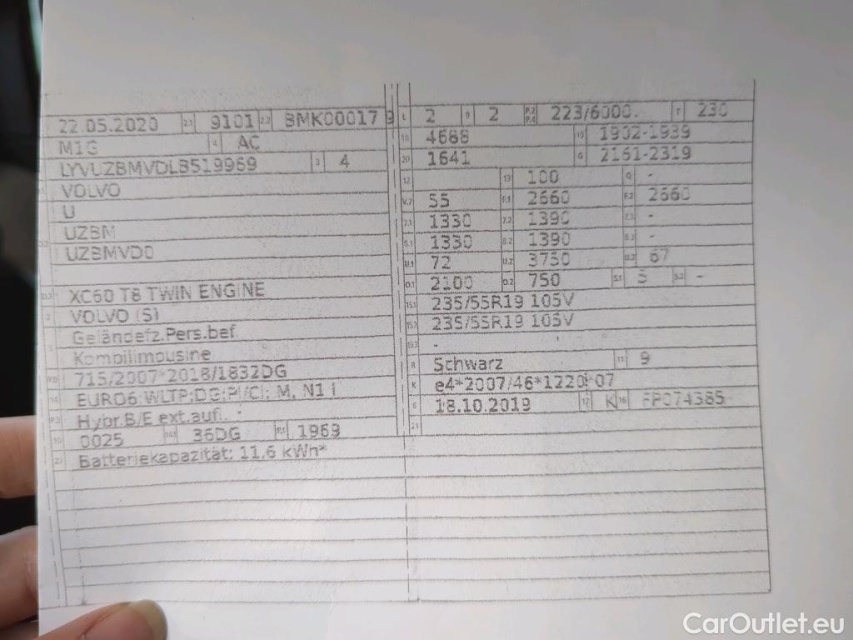 22.05.2020 9101 BMK00017 9
M1G AC
LYVUZBMVDLB519969 4
VOLVO
U
UZBM
UZBMVD0
XC60 T8 TWIN ENGINE
VOLVO (S)
Geländefz.Pers.bef
Kombilimousine
715/2007*2018/1832DG
EURO6;WLTP;DG;PI/CI; M, N1 I
Hybr.B/E ext.aufl. -
0025 36DG 1969
Batteriekapazität: 11,6 kWh*
2 2 223/6000. 230
4688 1902-1939
1641 2151-2319
100 -
55 2660 2660
1330 1390 -
1330 1390 -
72 3750 67
2100 750 5 -
235/55R19 105V
235/55R19 105V
-
Schwarz 9
e4*2007/46*1220*07
18.10.2019 K FP074385
CarOutlet.eu